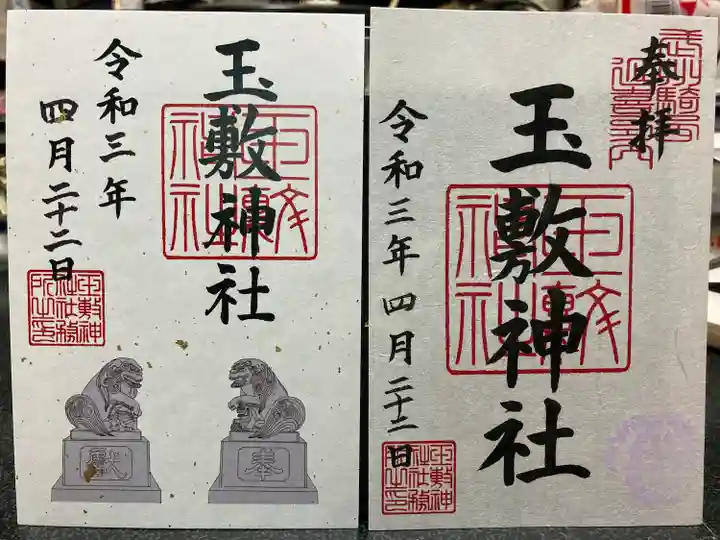 玉敷神社
令和三年
四月二十二日
玉敷神
社社務
所之印
献
奉
奉拝
玉敷神社
令和三年四月二十二日
玉敷神
社社務
所之印